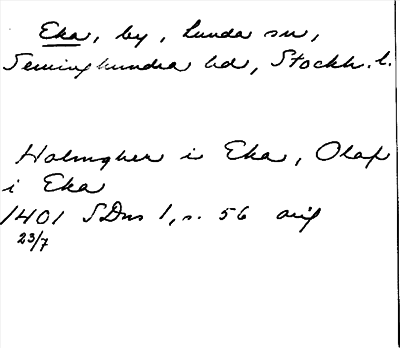 Eka, by, Lunda sn,
Seminghundra hd, Stockh. l.
Holmgher i Eka, Olaf
i Eka
1401 SDns 1, s. 56 orig
23/7